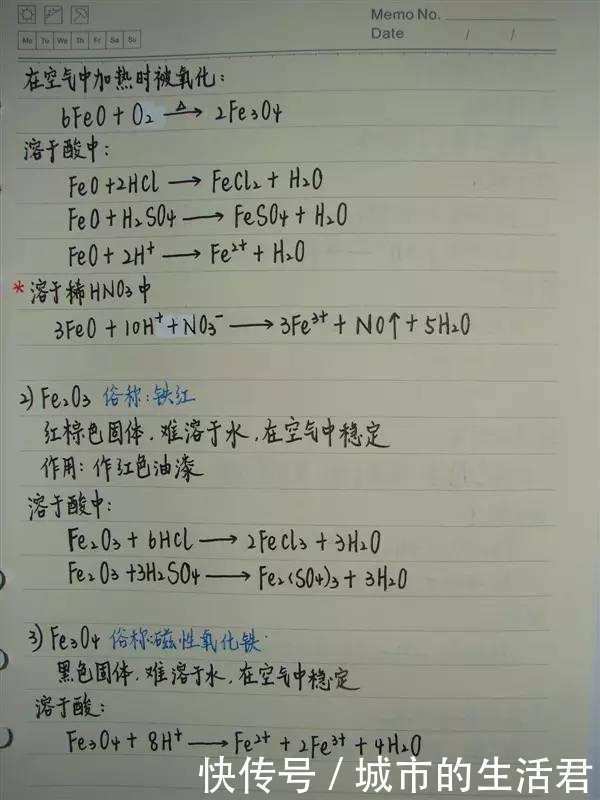 Memo No.
Date / /
Mo Tu We Th Fr Sa Su
在空气中加热时被氧化:
6FeO + O₂ —△→ 2Fe₃O₄
溶于酸中:
FeO + 2HCl ⟶ FeCl₂ + H₂O
FeO + H₂SO₄ ⟶ FeSO₄ + H₂O
FeO + 2H⁺ ⟶ Fe²⁺ + H₂O
*溶于稀HNO₃中
3FeO + 10H⁺ + NO₃⁻ ⟶ 3Fe³⁺ + NO↑ + 5H₂O
2) Fe₂O₃ 俗称:铁红
红棕色固体,难溶于水,在空气中稳定
作用:作红色油漆
溶于酸中:
Fe₂O₃ + 6HCl ⟶ 2FeCl₃ + 3H₂O
Fe₂O₃ + 3H₂SO₄ ⟶ Fe₂(SO₄)₃ + 3H₂O
3) Fe₃O₄ 俗称:磁性氧化铁
黑色固体,难溶于水,在空气中稳定
溶于酸:
Fe₃O₄ + 8H⁺ ⟶ Fe²⁺ + 2Fe³⁺ + 4H₂O
快传号 / 城市的生活君